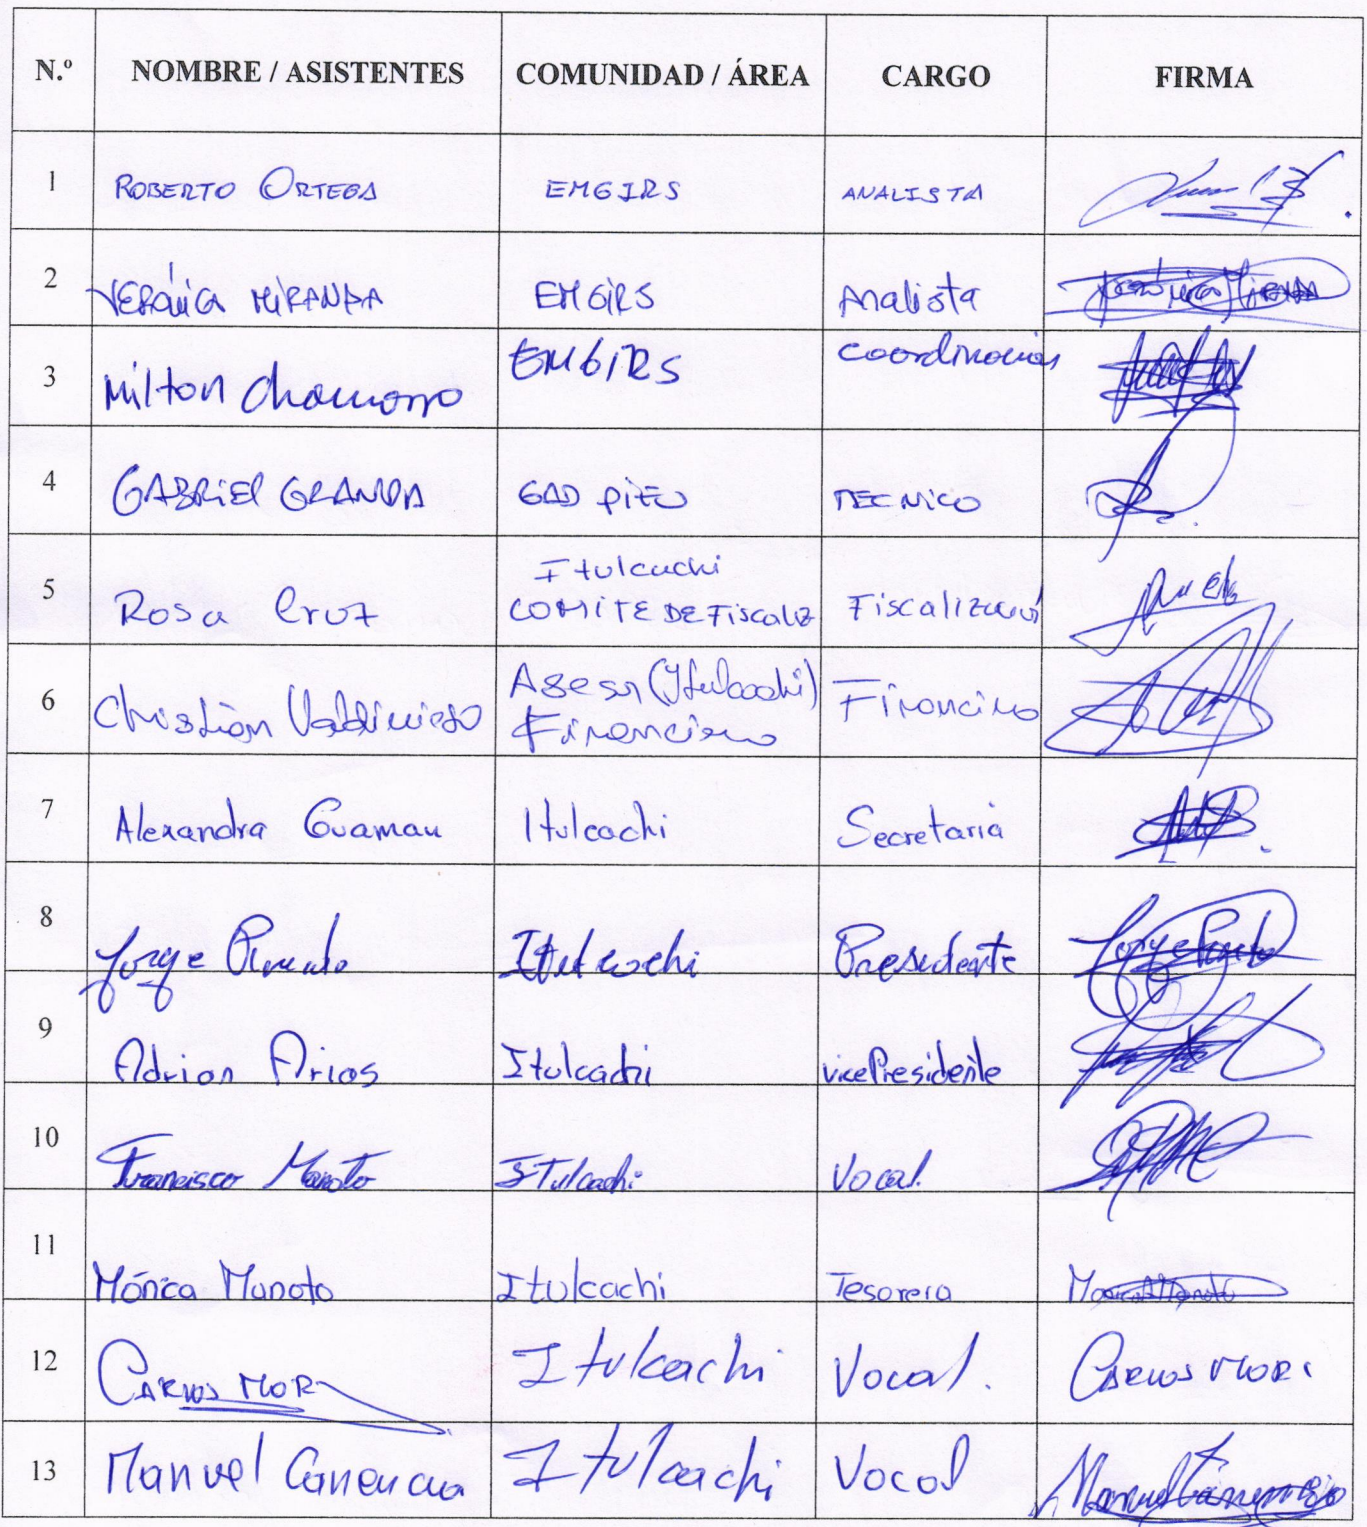 N.º NOMBRE / ASISTENTES COMUNIDAD / ÁREA CARGO FIRMA
1 ROBERTO ORTEGA EMGIRS ANALISTA
2 VERÓNICA MIRANDA EMGIRS Analista Verónica Miranda
3 Milton Chamorro EMGIRS Coordinación
4 GABRIEL GRANDA GAD PIFO TECNICO
5 Rosa Cruz Itulcachi
COMITE DE Fiscaliz Fiscalización
6 Christian Valdivieso Asesor (Itulcachi)
Financiero Financiero
7 Alexandra Guaman Itulcachi Secretaria
8 Jorge Itulcachi Presidente Jorge
9 Adrian Arias Itulcachi vicePresidente
10 Francisco Manoto Itulcachi Vocal.
11 Mónica Manoto Itulcachi Tesorera Monica Manoto
12 CARLOS MORI Itulcachi Vocal. CARLOS MORI
13 Manuel Canencia Itulcachi Vocal Manuel